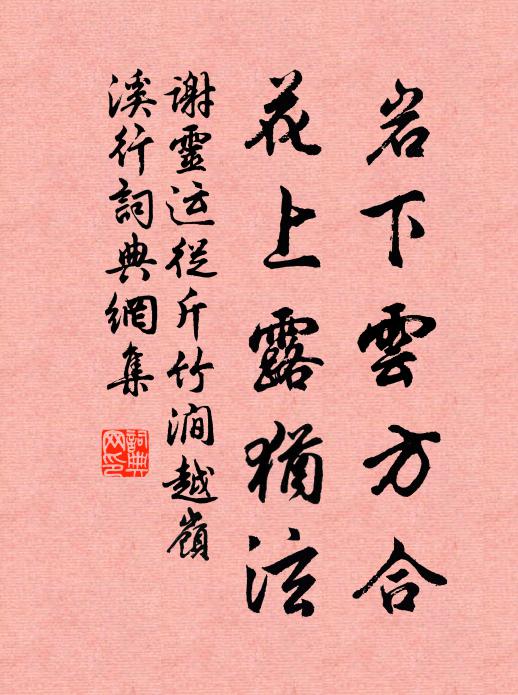 岩下雲方合
花上露猶泫
謝靈运從斤竹澗越嶺
溪行詞典網集
詞典网印